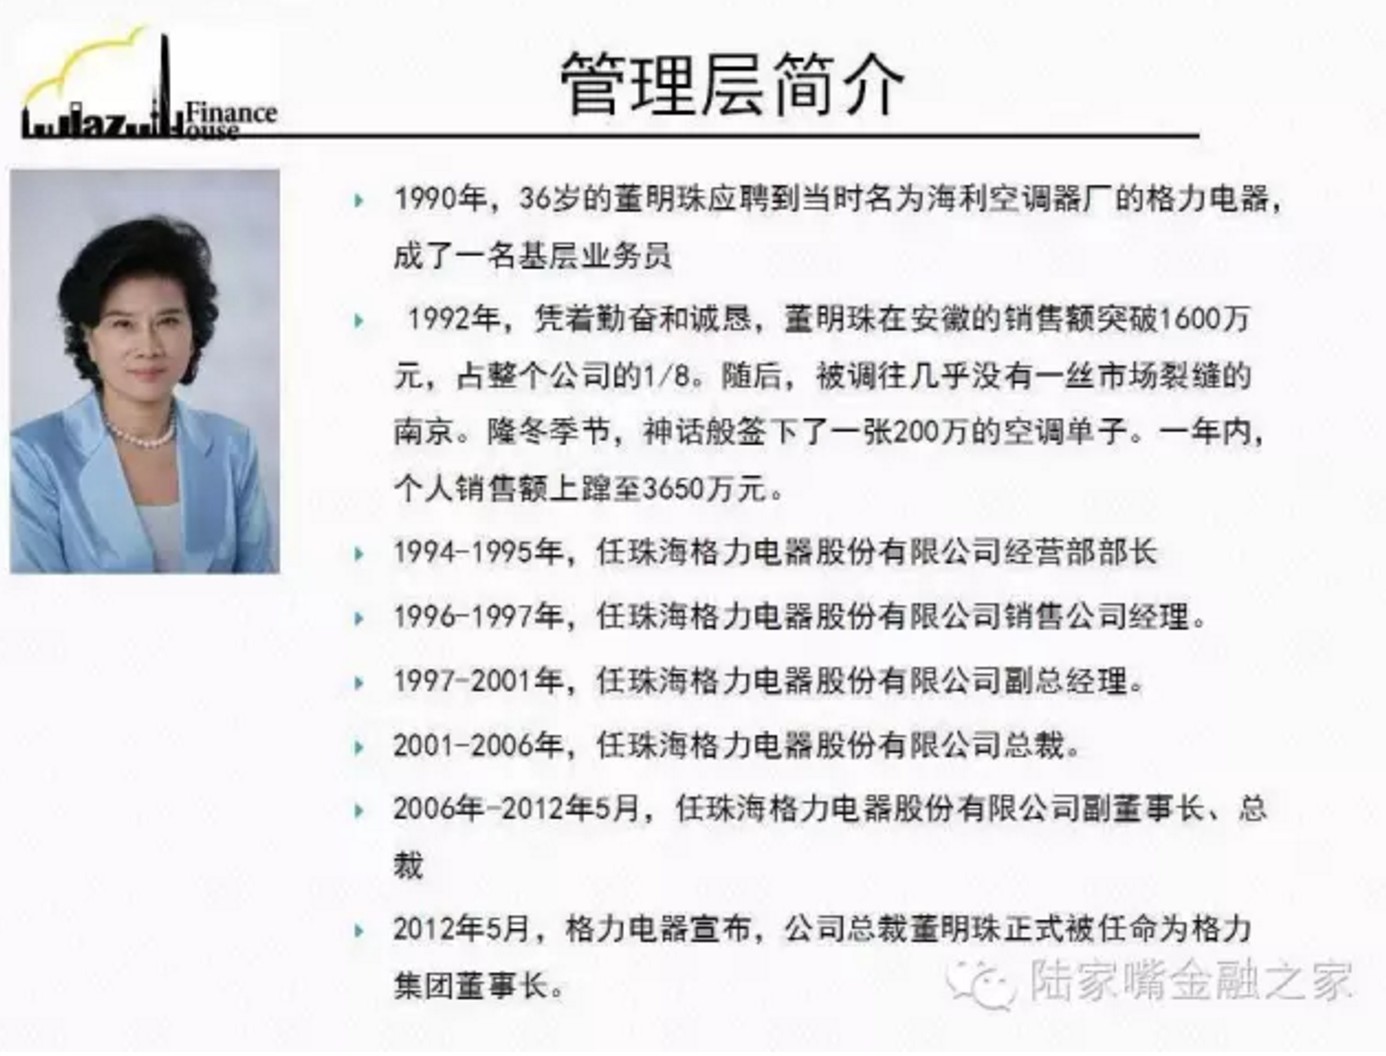 Finance
Lujiazui House
管理层简介
1990年，36岁的董明珠应聘到当时名为海利空调器厂的格力电器，
成了一名基层业务员
1992年，凭着勤奋和诚恳，董明珠在安徽的销售额突破1600万
元，占整个公司的1/8。随后，被调往几乎没有一丝市场裂缝的
南京。隆冬季节，神话般签下了一张200万的空调单子。一年内，
个人销售额上蹿至3650万元。
1994-1995年，任珠海格力电器股份有限公司经营部部长
1996-1997年，任珠海格力电器股份有限公司销售公司经理。
1997-2001年，任珠海格力电器股份有限公司副总经理。
2001-2006年，任珠海格力电器股份有限公司总裁。
2006年-2012年5月，任珠海格力电器股份有限公司副董事长、总
裁
2012年5月，格力电器宣布，公司总裁董明珠正式被任命为格力
集团董事长。
陆家嘴金融之家